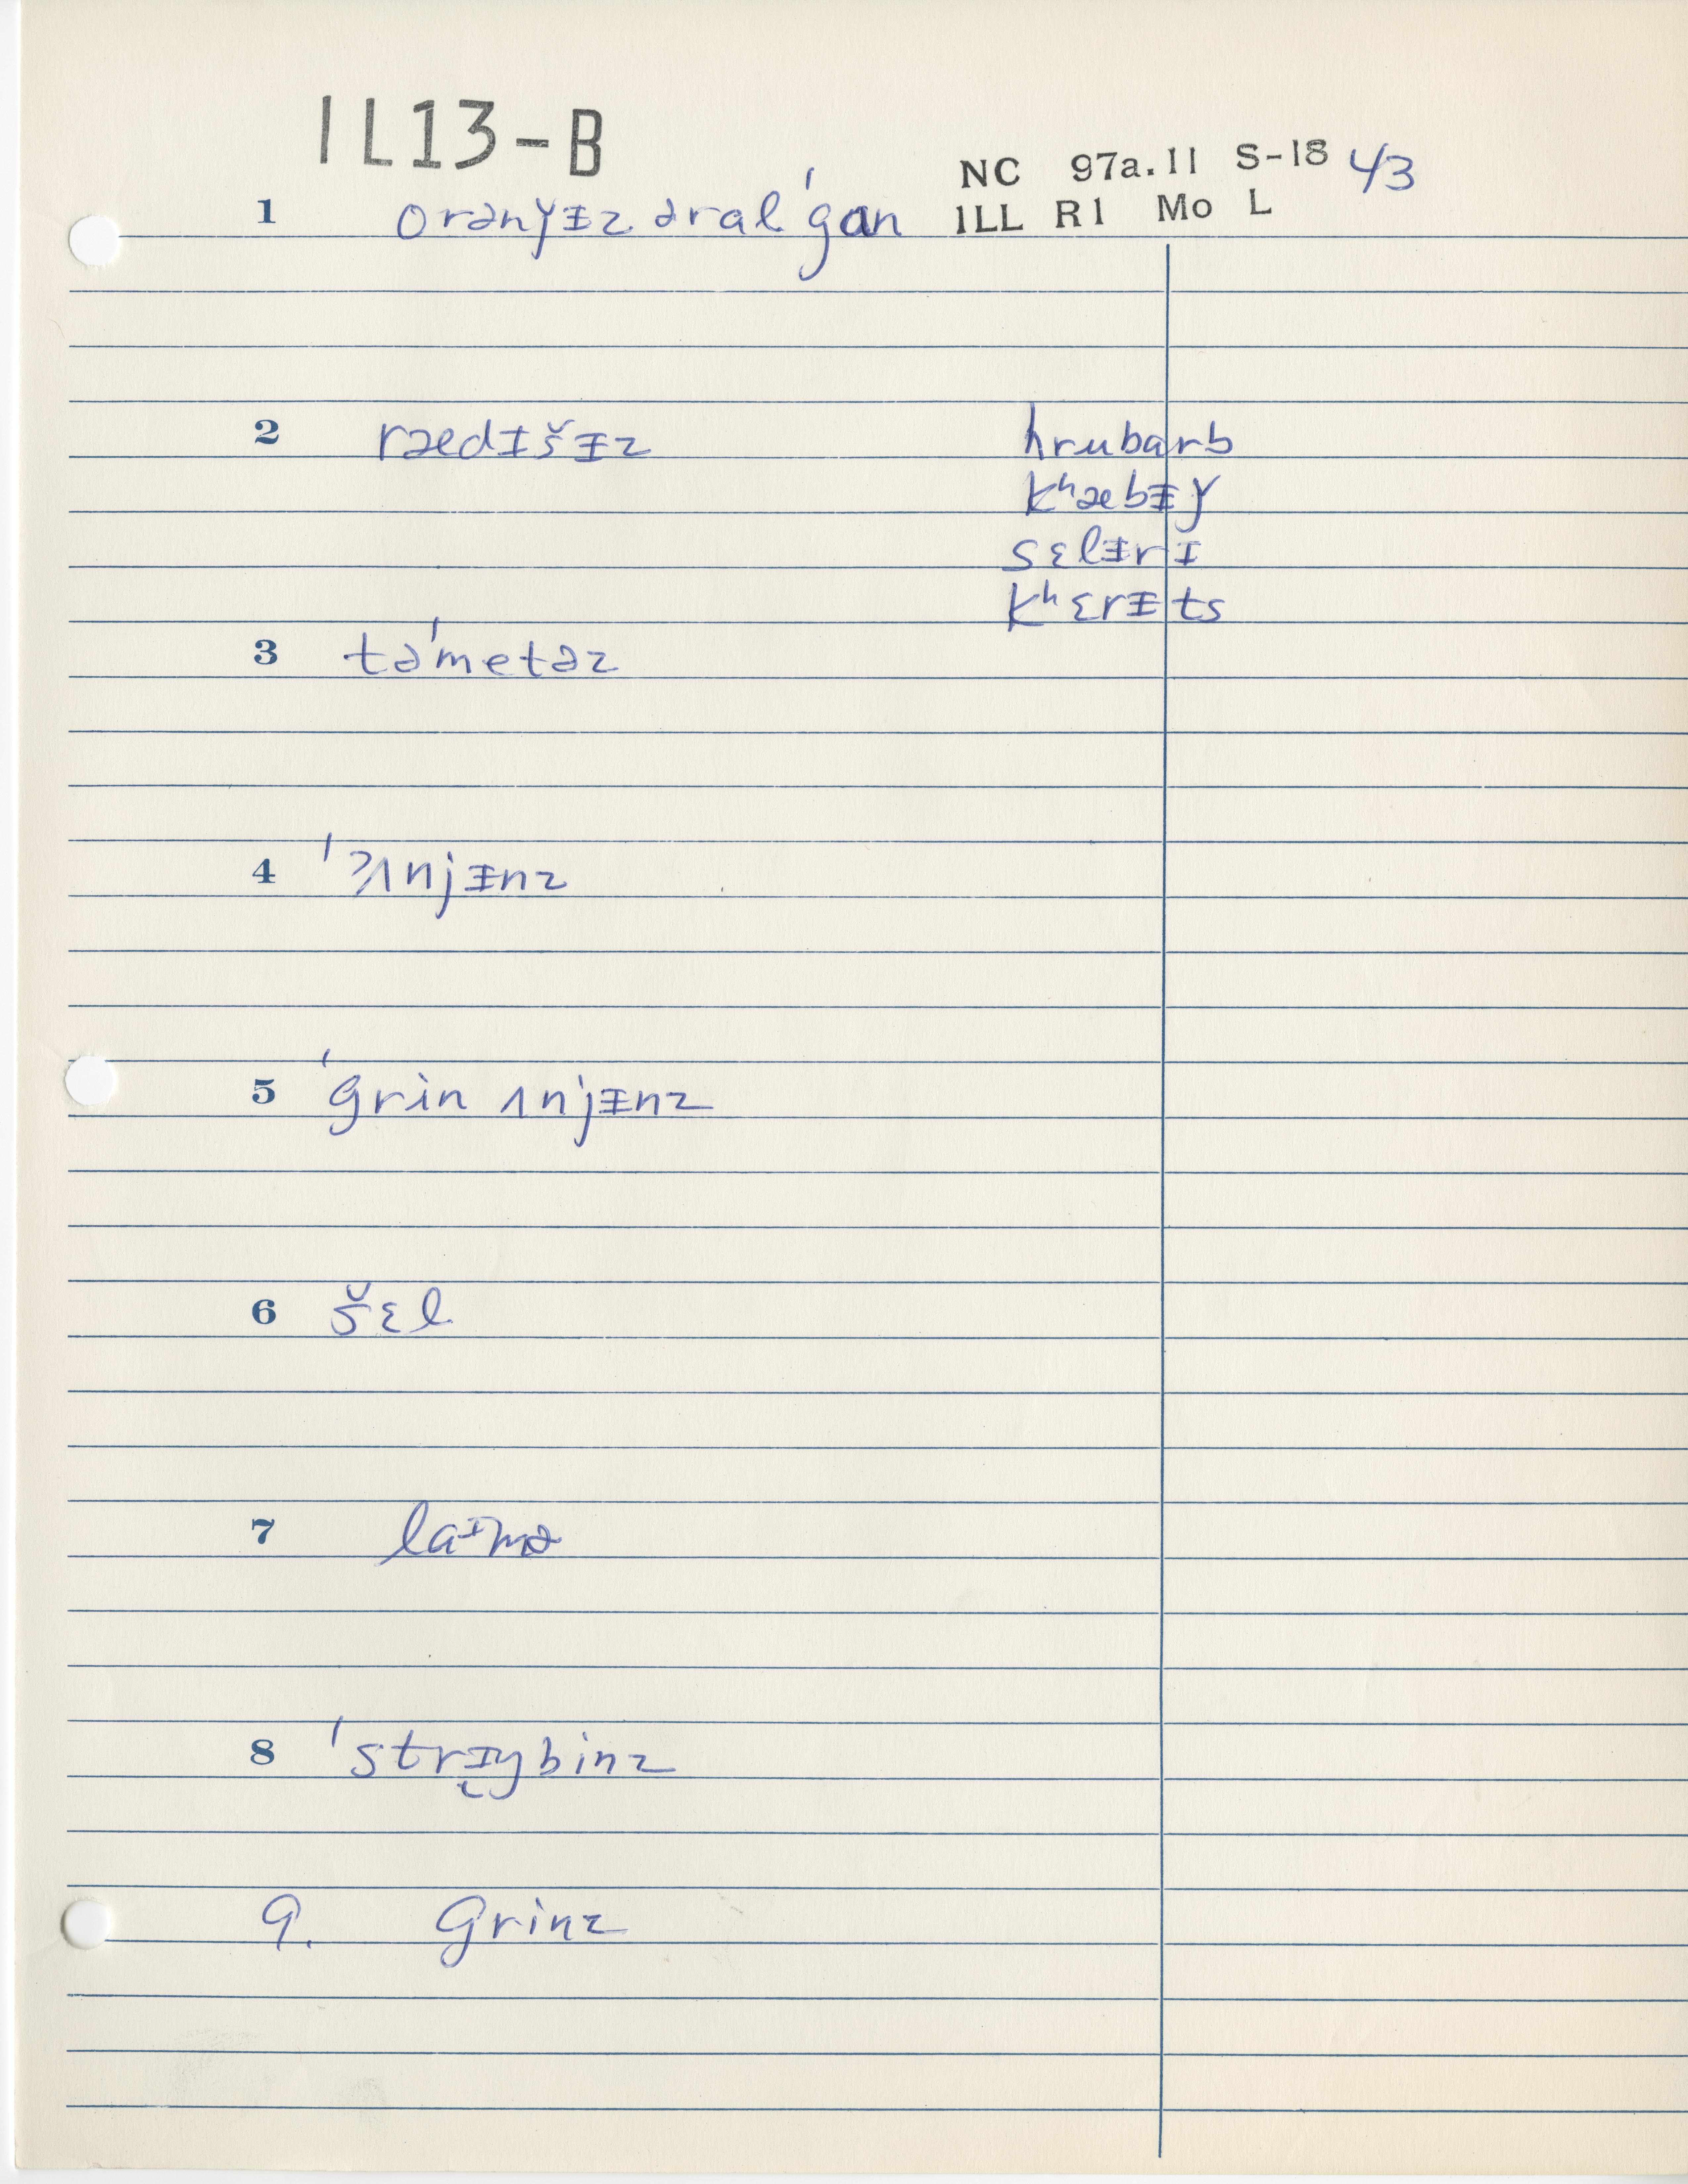 IL13-B
NC 97a.11 S-18 43
ILL R1 Mo L
1 orənɏᵻz ər al ˈgɑn
2 rædɪšᵻz
hrubarb
kʰæbᵻɏ
sɛlᵻrɪ
kʰɛrᵻts
3 təˈmetəz
4 ˈʔʌnjᵻnz
5 ˈgrin ʌnjᵻnz
6 šɛl
7 laɪmə
8 ˈstrɪ̨ybinz
9. grinz